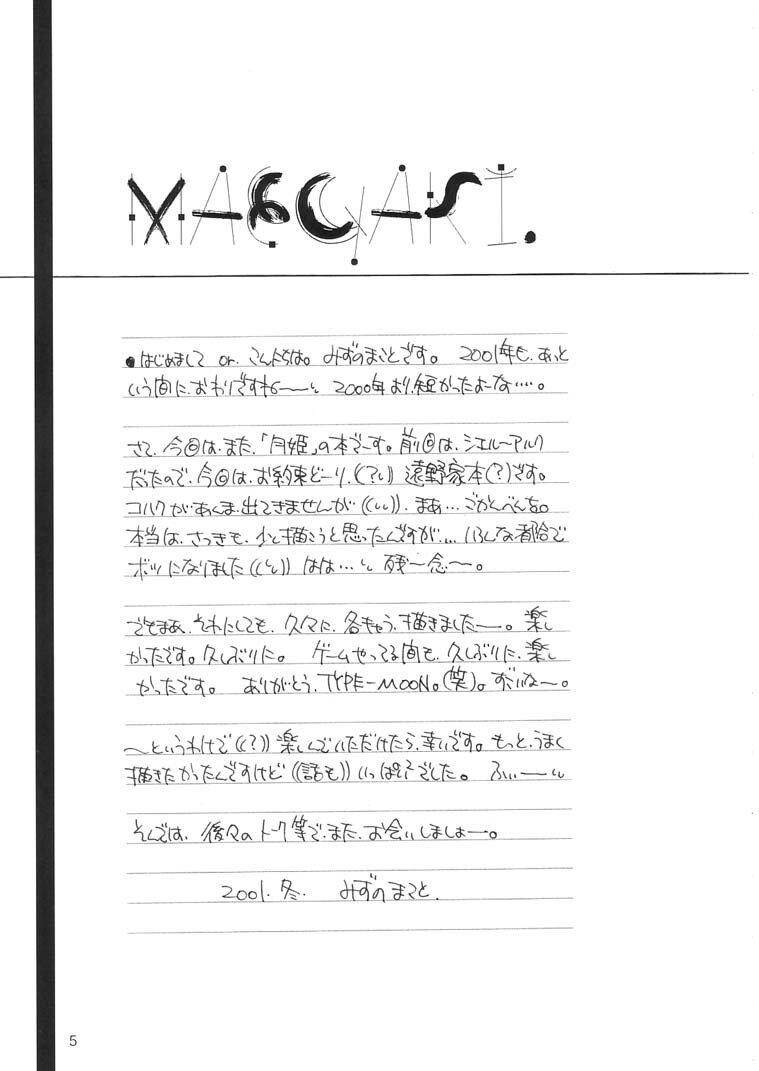 MAEGAKI.
●はじめまして or. こんにちは。みずのまことです。2001年も、あっと
いう間に、おわりですね〜〜い 2000年より、短かったよーな‥‥。
さて、今回は、また、「月姫」の本でーす。前回は、シエルーアルク
だたので、今回は、お約束どーり、(?い) 遠野家本(?)です。
コハクが、あんま、出てきませんが((いい))、まあ…ごかんべんを。
本当は、さっきも、少と描こうと思ったんですが… いろんな都合で
ボツになりました((い)) はは…い 残〜念〜。
でもまあ、それにしても、久々に、各きゃら、描きましたー。楽し
かったです。久しぶりに。ゲームやってる間も、久しぶりに、楽し
かったです。ありがとう、TYPE-MOON。(笑)。すごいな〜。
〜というわけで((?)) 楽しんでいただけたら、幸いです。もっと、うまく
描きたかったんですけど((話も)) いっぱいでした。ふぃーーい
そんでは、後々のトーク等で、また、お会いしましょー。
2001. 冬. みずのまこと.
5